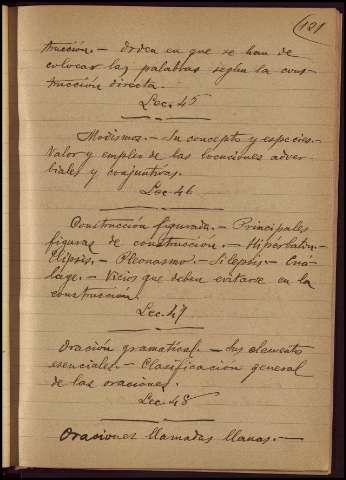 121
trucción.— Orden en que se han de
colocar las palabras según la cons-
trucción directa.
Lec. 45
Modismos.— Su concepto y especies.—
Valor y empleo de las locuciones adver-
biales y conjuntivas.
Lec 46
Construcción figurada.— Principales
figuras de construcción.— Hipérbaton.—
Elipsis.— Pleonasmo.— Silepsis.— Ená-
lage.— Vicios que deben evitarse en la
construccion.
Lec. 47
Oración gramatical.— Sus elementos
esenciales.— Clasificación general
de las oraciones.
Lec. 48
Oraciones llamadas llanas.—